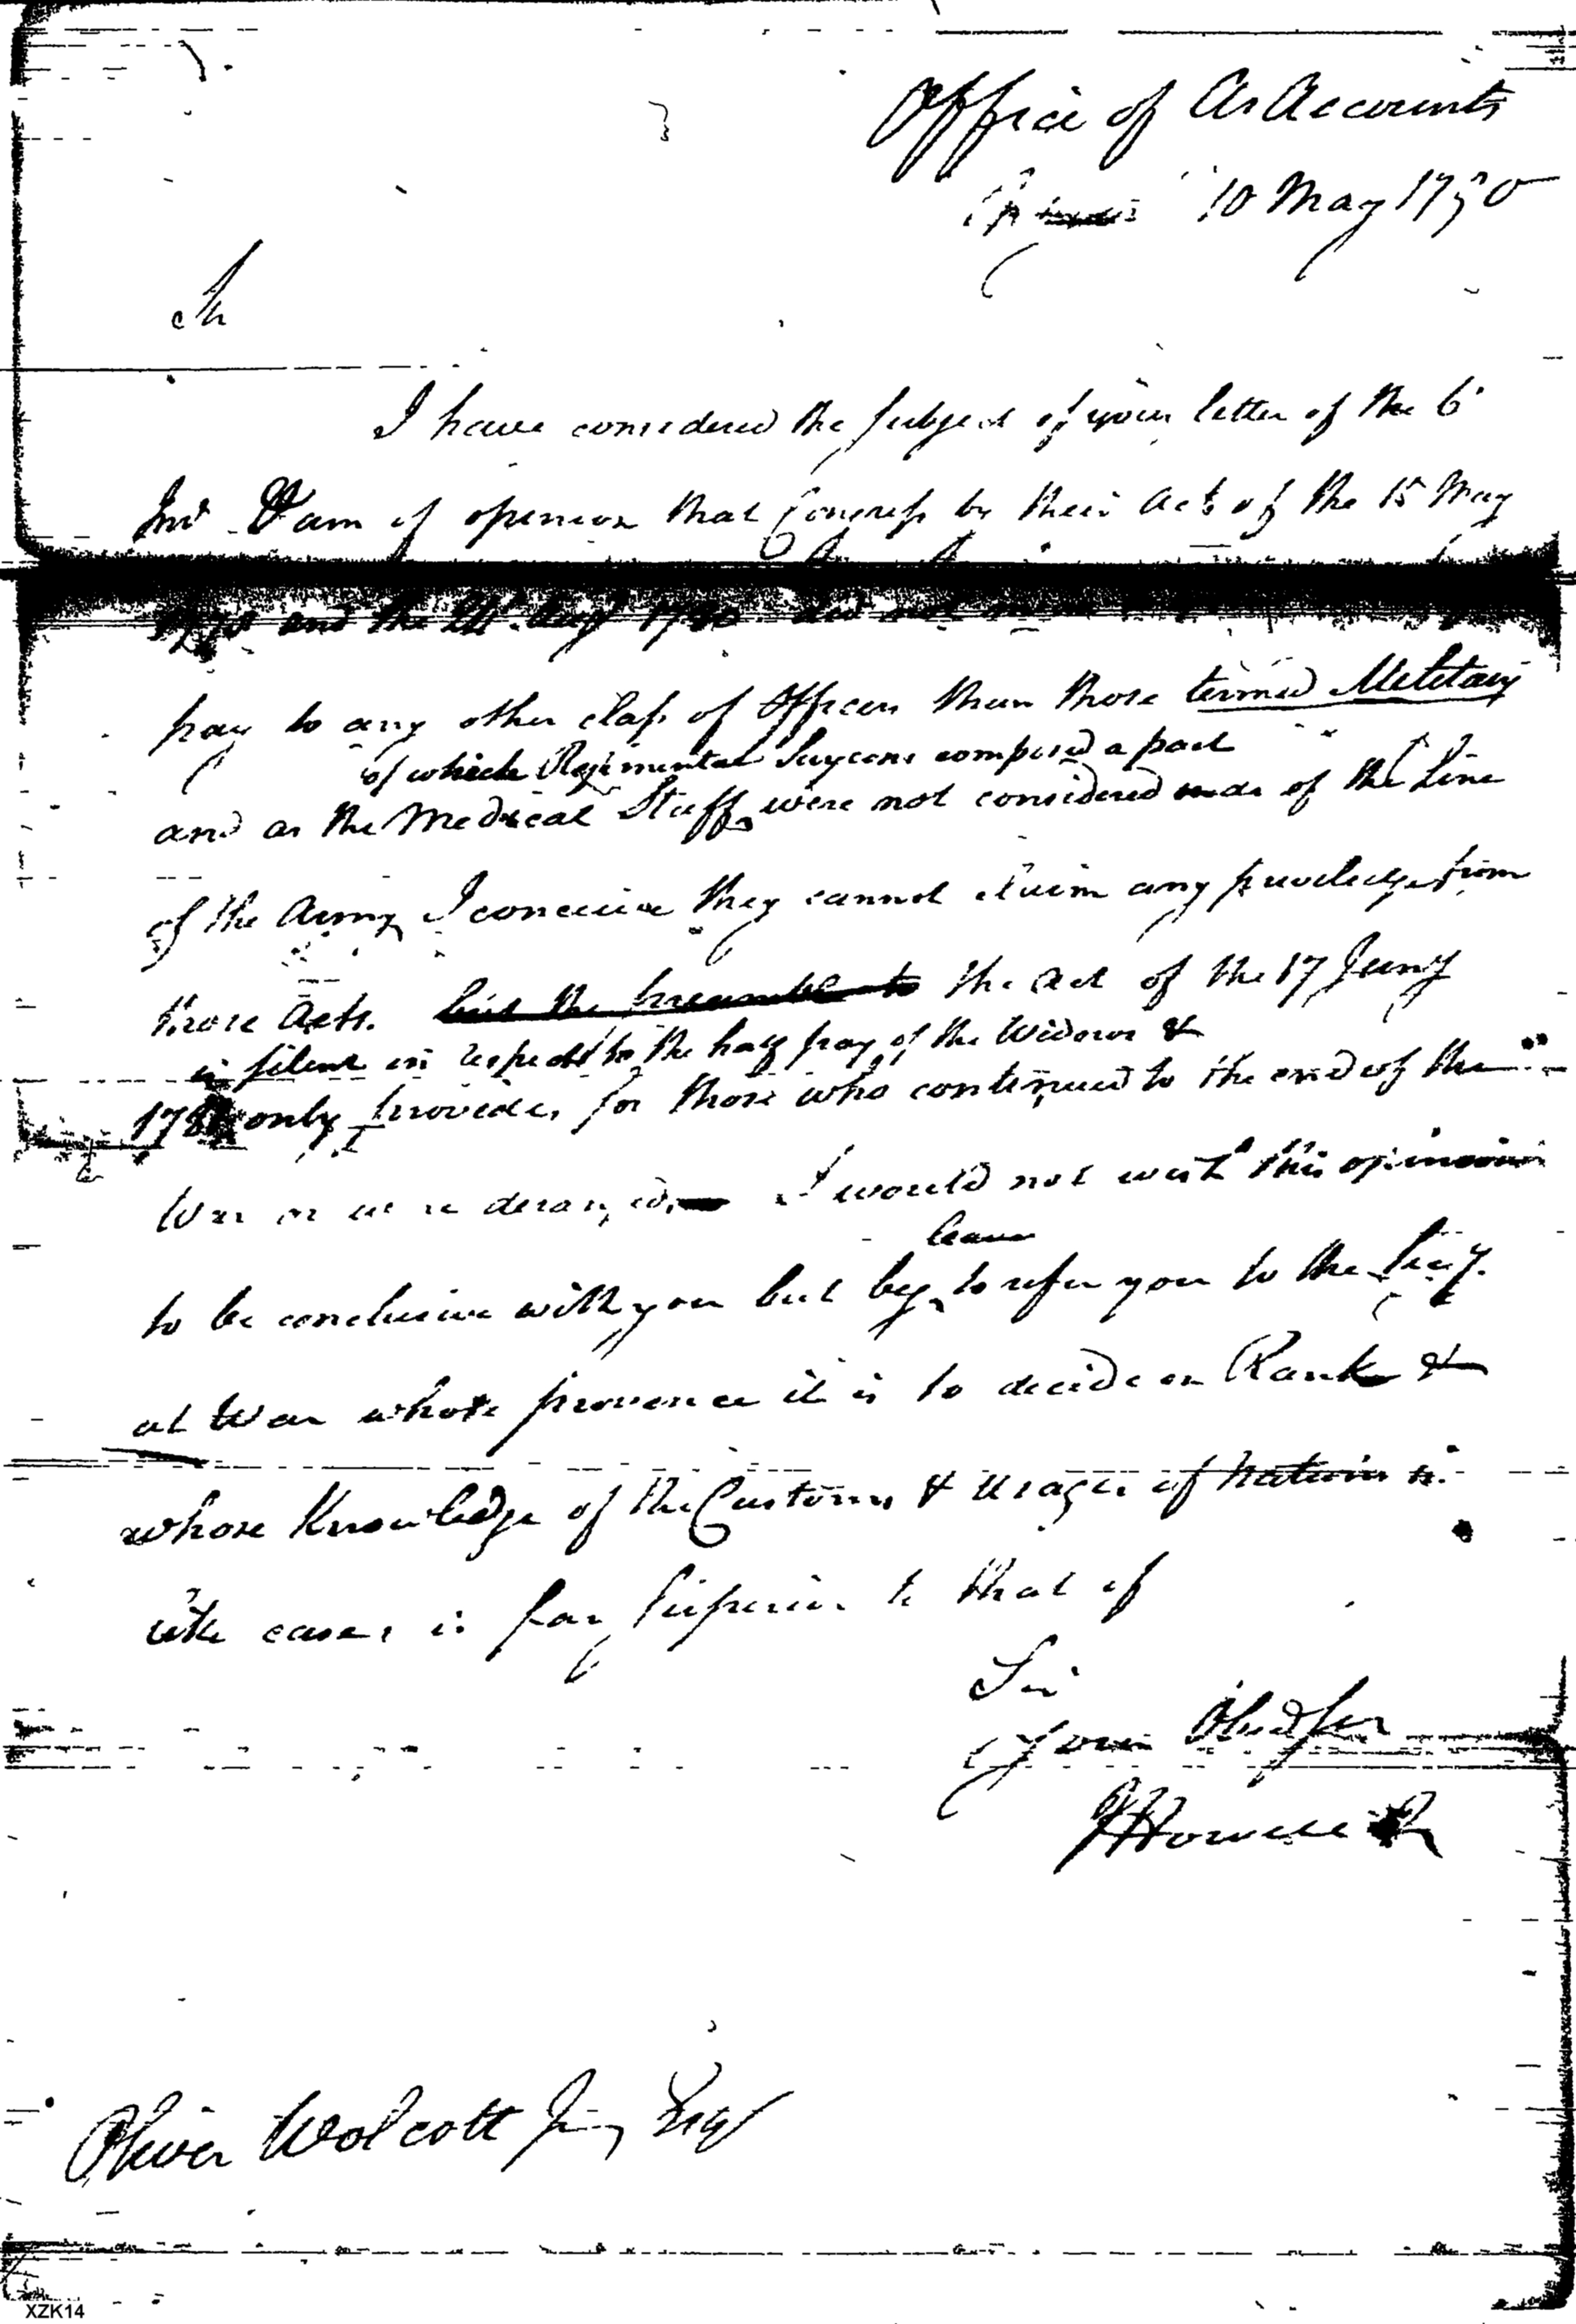 Office of Ar Accounts
10 May 1790
Sir
I have considered the subject of your letter of the 6
Inst I am of opinion that Congress by their Acts of the 15 May
and the 24 Aug 1780 did not
pay to any other class of Officers than those termed Military
of which Regimental Surgeons composed a part
and as the Medical Staff were not considered as of the Line
of the Army I conceive they cannot claim any priviledge from
those Acts. but the preamble to the Act of the 17 Jany
is silent in respect to the half pay of the Widows &
only provides for those who continued to the end of the
War or were deranged. I would not wish this opinion
leave
to be conclusive with you but beg to refer you to the Secy.
at War whose provence it is to decide on Rank &
whose Knowledge of the Customs & Usages of Nations in
like cases is far Superior to that of
Sir
Your Obed Ser
J Howell Jr
Oliver Wolcott Jun Esqr
XZK14